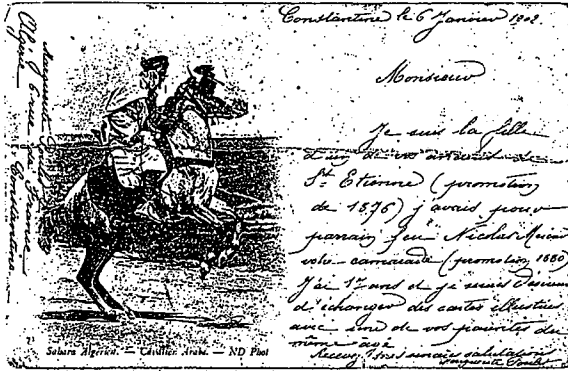 Constantine le 6 Janvier 1902
Monsieur
Je suis la fille
d'un de vos de
St Etienne (promotion
de 1876) j'avais pour
parrain feu Nicolas
votre camarade (promotion 1880)
J'ai ans et je serais
d'échanger des cartes illustrées
avec une de vos parentes du
même age
Recevez salutations
Marguerite
Marguerite
rue de France
Constantine
Algérie
Sahara Algérien. — Cavalier Arabe. — ND Phot